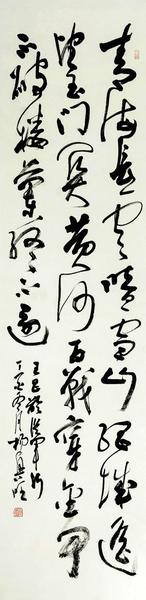 青海長云暗雪山孤城遥
望玉门関黄沙百戰穿金甲
不破樓蘭終不還
王昌齡從軍行
丁亥